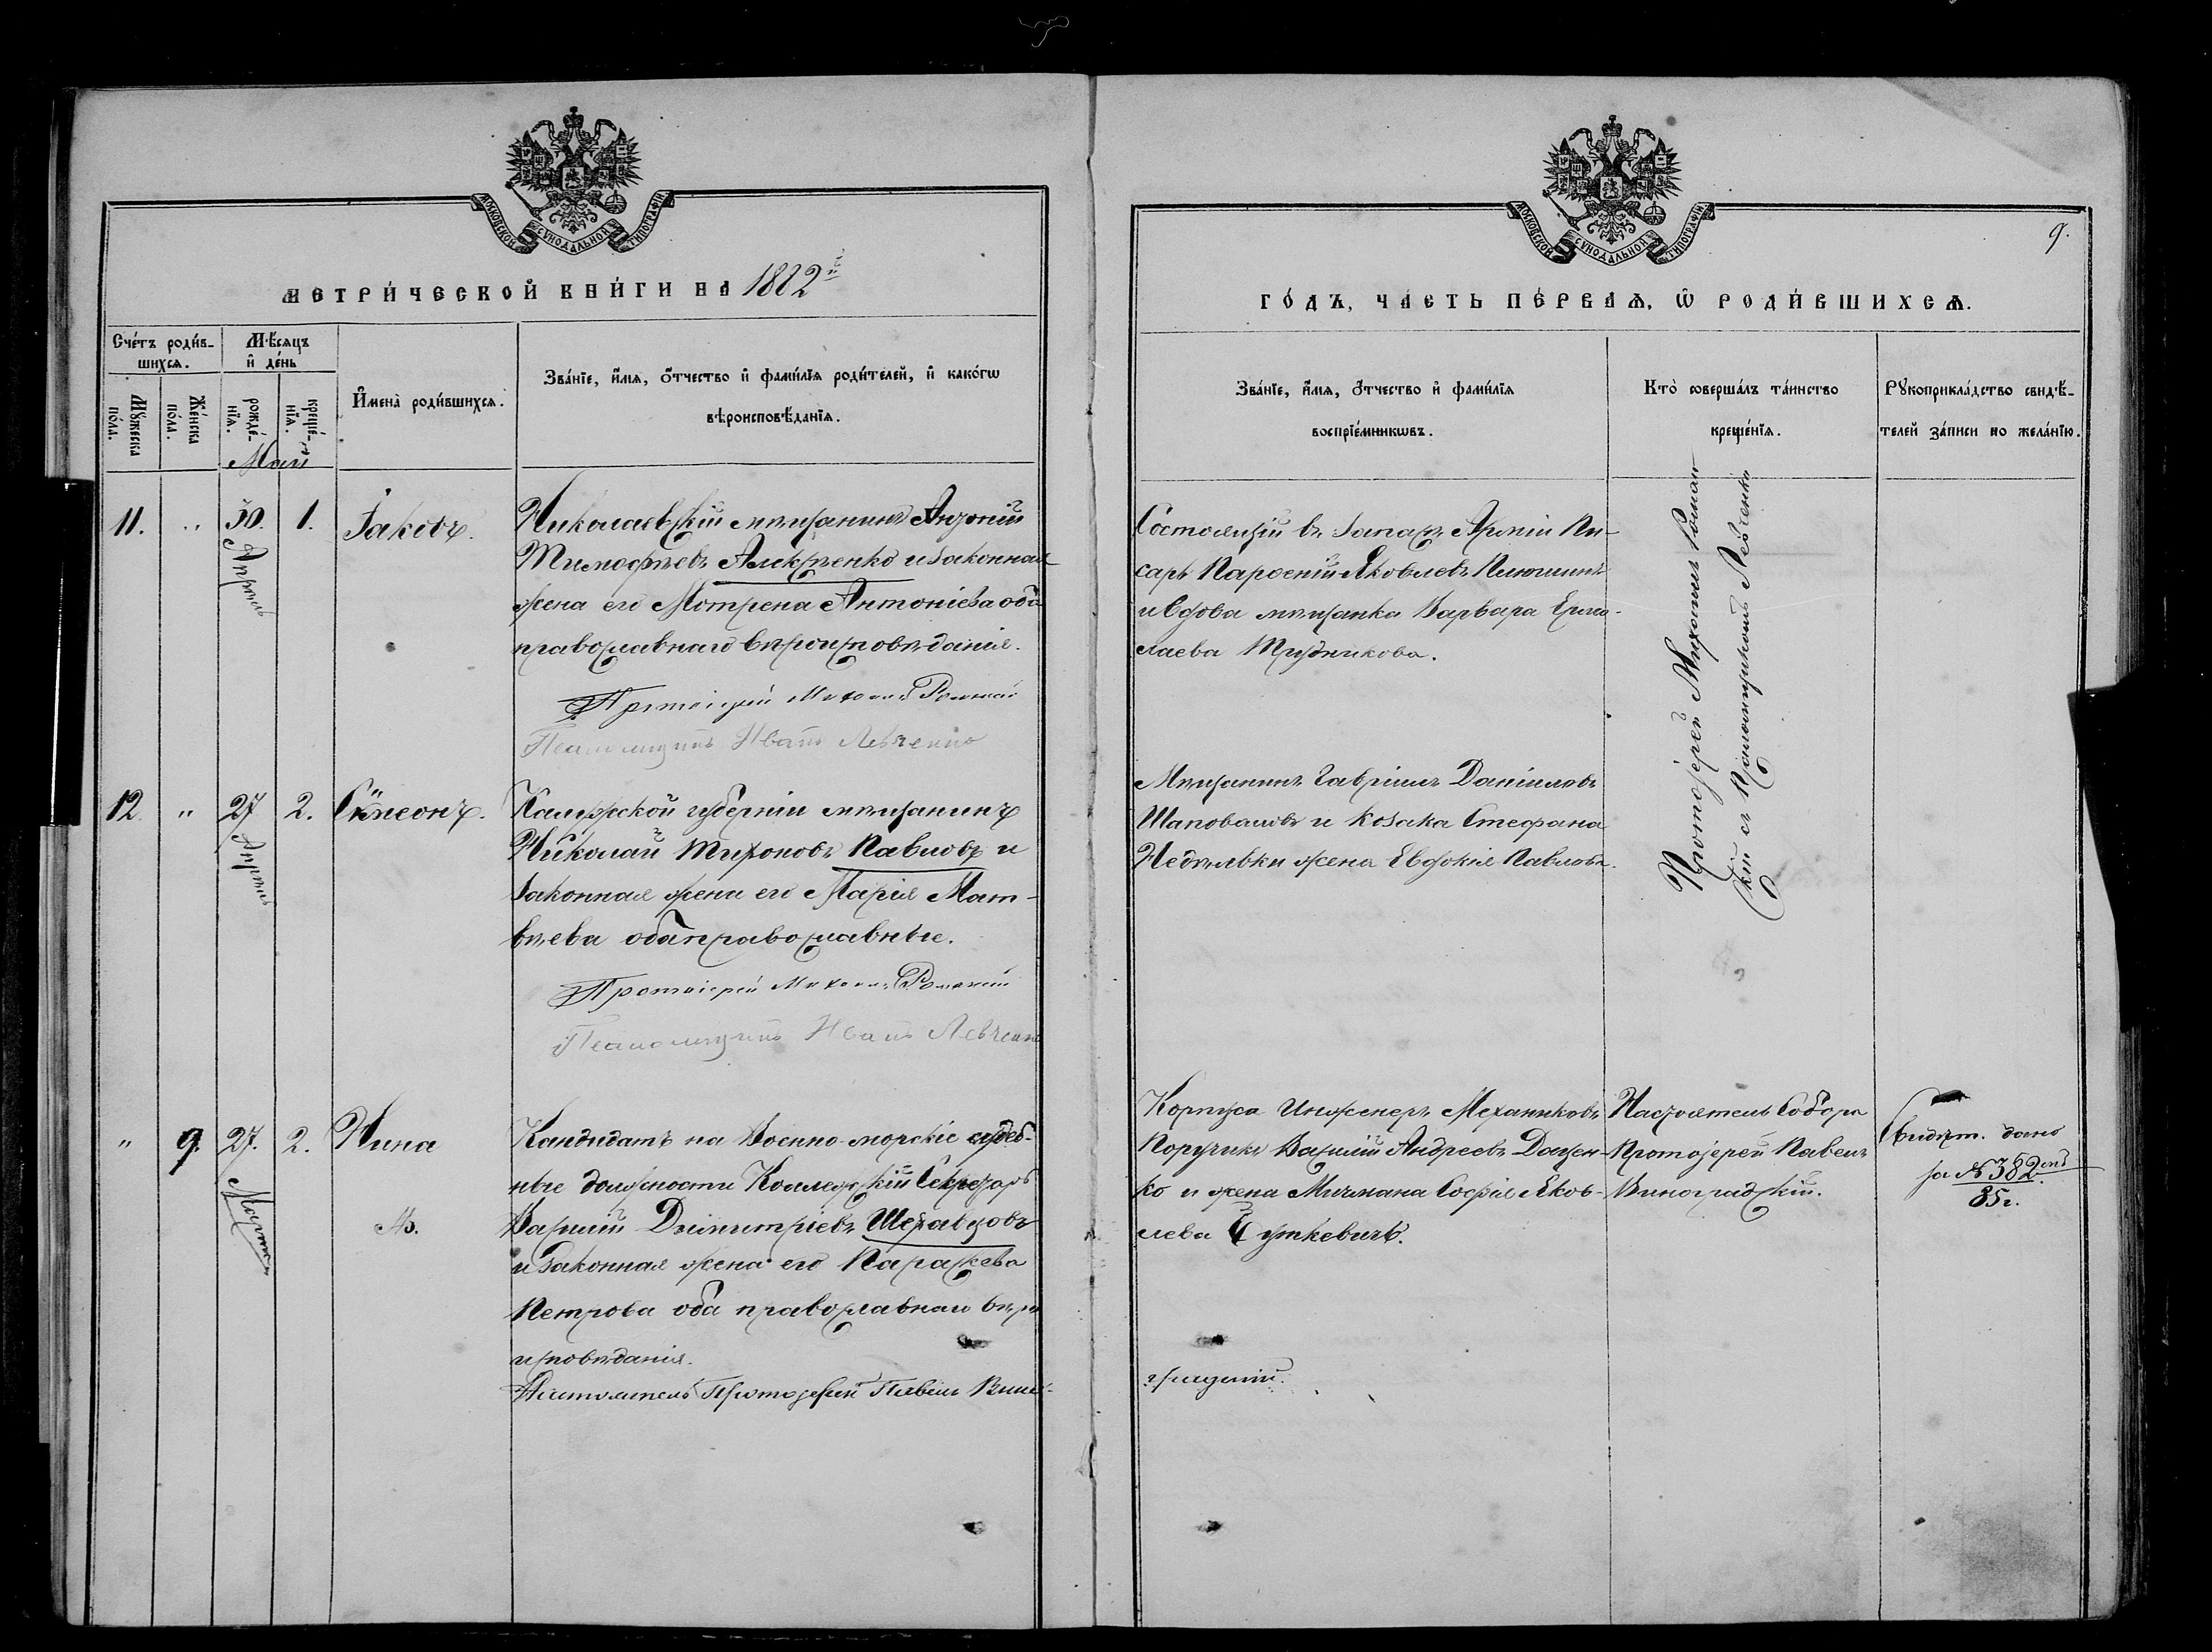 МОСКОВСКОЙ СѴНОДАЛЬНОЙ ТИПОГРАФІИ
МЕТРИ́ЧЕСКОЙ КНИ́ГИ НА 1882й
Сче́тъ роди́в-
шихсѧ.
Мѣ́сѧцъ
и҆ де́нь
Мꙋ́жеска
по́ла.
Же́нска
по́ла.
рожде́-
нїѧ.
креще́-
нїѧ.
И҆мена̀ роди́вшихсѧ.
Зва́нїе, и҆́мѧ, о҆́тчество и҆ фами́лїѧ роди́телей, и҆ како́гѡ
вѣроисповѣ́данїѧ.
Май
11. " 30. Апрѣль 1. Іаковъ.
Николаевскій мѣщанинъ Антоній
Тимофѣевъ Алексѣенко и законная
жена его Мотрена Антоніева оба
православнаго вѣроисповѣданія.
Протоіерей Михаилъ Романскій
Псаломщикъ Иванъ Левченко
12. " 27 Апрѣль 2. Сѵмеонъ.
Калужской губерніи мѣщанинъ
Николай Тихоновъ Павловъ и
законная жена его Марія Мат-
вѣева оба православные.
Протоіерей Михаилъ Романскій
Псаломщикъ Иванъ Левченко
" 9. 27. Марта 2. Нина
Кандидатъ на Военно-морскіе судеб-
ные должности Коллежскій Секретарь
Василій Димитріевъ Шеравцовъ
и законная жена его Параскева
Петрова оба православнаго вѣро
исповѣданія.
Настоятель Протоіерей Павелъ Вино-
МОСКОВСКОЙ СѴНОДАЛЬНОЙ ТИПОГРАФІИ
9.
ГО́ДЪ, ЧА́СТЬ ПЕ́РВАѦ, Ѡ҆ РОДИ́ВШИХСѦ.
Зва́нїе, и҆́мѧ, о҆́тчество и҆ фами́лїѧ
воспрїе́мникѡвъ.
Кто̀ соверша́лъ та́инство
креще́нїѧ.
Рꙋкоприкла́дство свидѣ́-
телей за́писи по жела́нїю.
Состоящій въ Запасѣ Арміи Пи-
сарь Парѳеній Яковлевъ Пилюгинъ
и вдова мѣщанка Варвара Ермо-
лаева Трудникова.
Протоіерей Михаилъ Роман-
скій съ Псаломщикомъ Левченко
Мѣщанинъ Гавріилъ Даніиловъ
Шаповаловъ и козака Стефана
Недѣлвки жена Евдокія Павлова.
Корпуса Инженеръ Механиковъ
Поручикъ Василій Андреевъ Доцен-
ко и жена Мичмана Софія Яков-
лева Сушкевичъ.
Настоятель Собора
Протоіерей Павелъ
Виноградскій.
Свидѣт. дано
за № 382
85 г.
градскій.